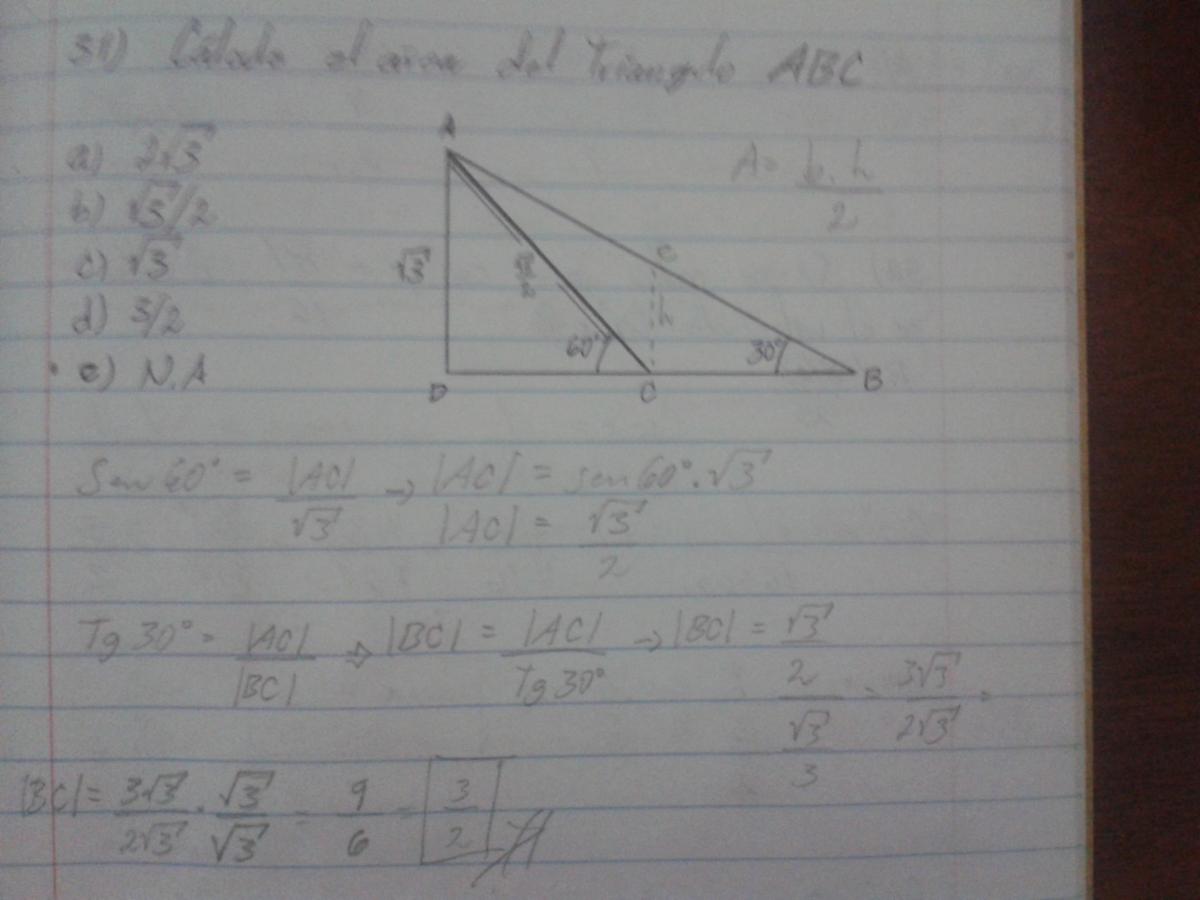 31) Calcule el area del Triangulo ABC
a) 2√3
b) √3/2
c) √3
d) 3/2
e) N.A
A
√3
60°
30°
D
C
B
e
h
A = b.h / 2
Sen 60° = |AC| / √3 → |AC| = sen 60°.√3
|AC| = √3 / 2
Tg 30° = |AC| / |BC| ⇒ |BC| = |AC| / Tg 30° → |BC| = √3 / 2 / √3 / 3 = 3√3 / 2√3 =
|BC| = 3√3 / 2√3 . √3 / √3 = 9 / 6 = 3 / 2